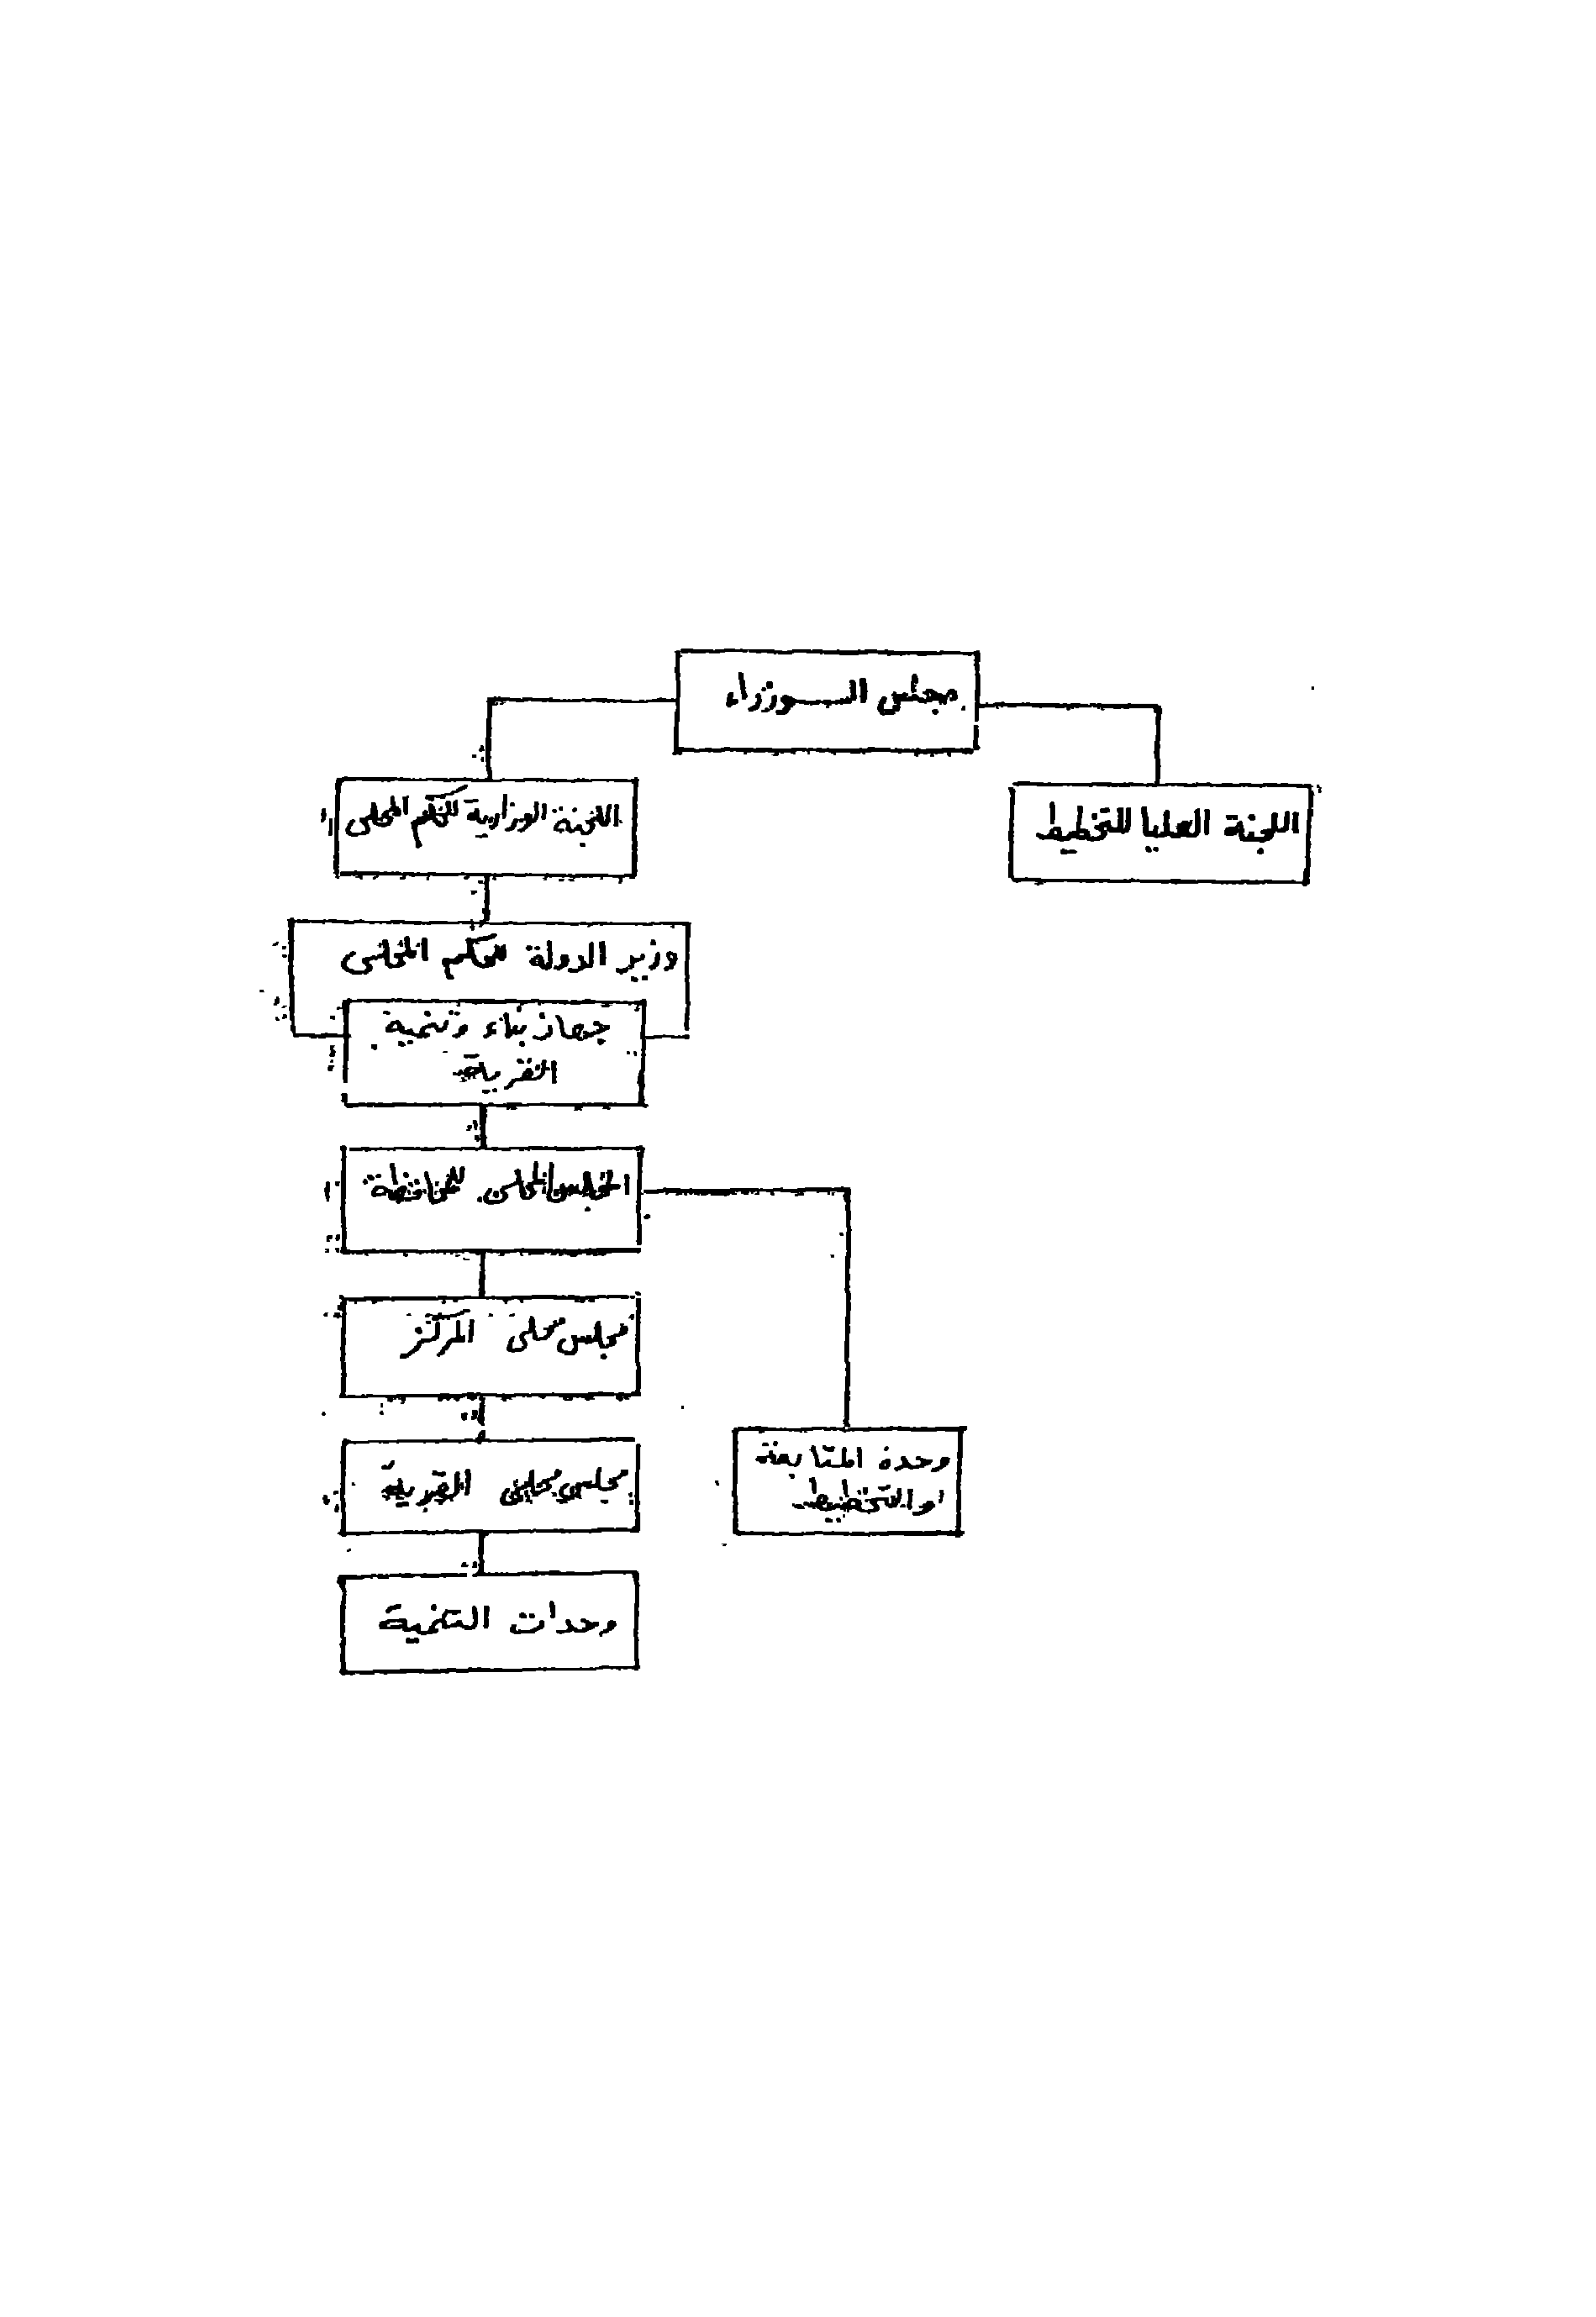 مجلس الوزراء
اللجنة العليا للتخطيط
اللجنة الوزارية للحكم المحلى
وزير الدولة للحكم المحلى
جهاز بناء وتنمية
القرية
المجلس المحلى للمحافظة
مجلس محلى المركز
مجلس محلى القرية
وحدة المتابعة
والتخطيط
وحدات التنمية